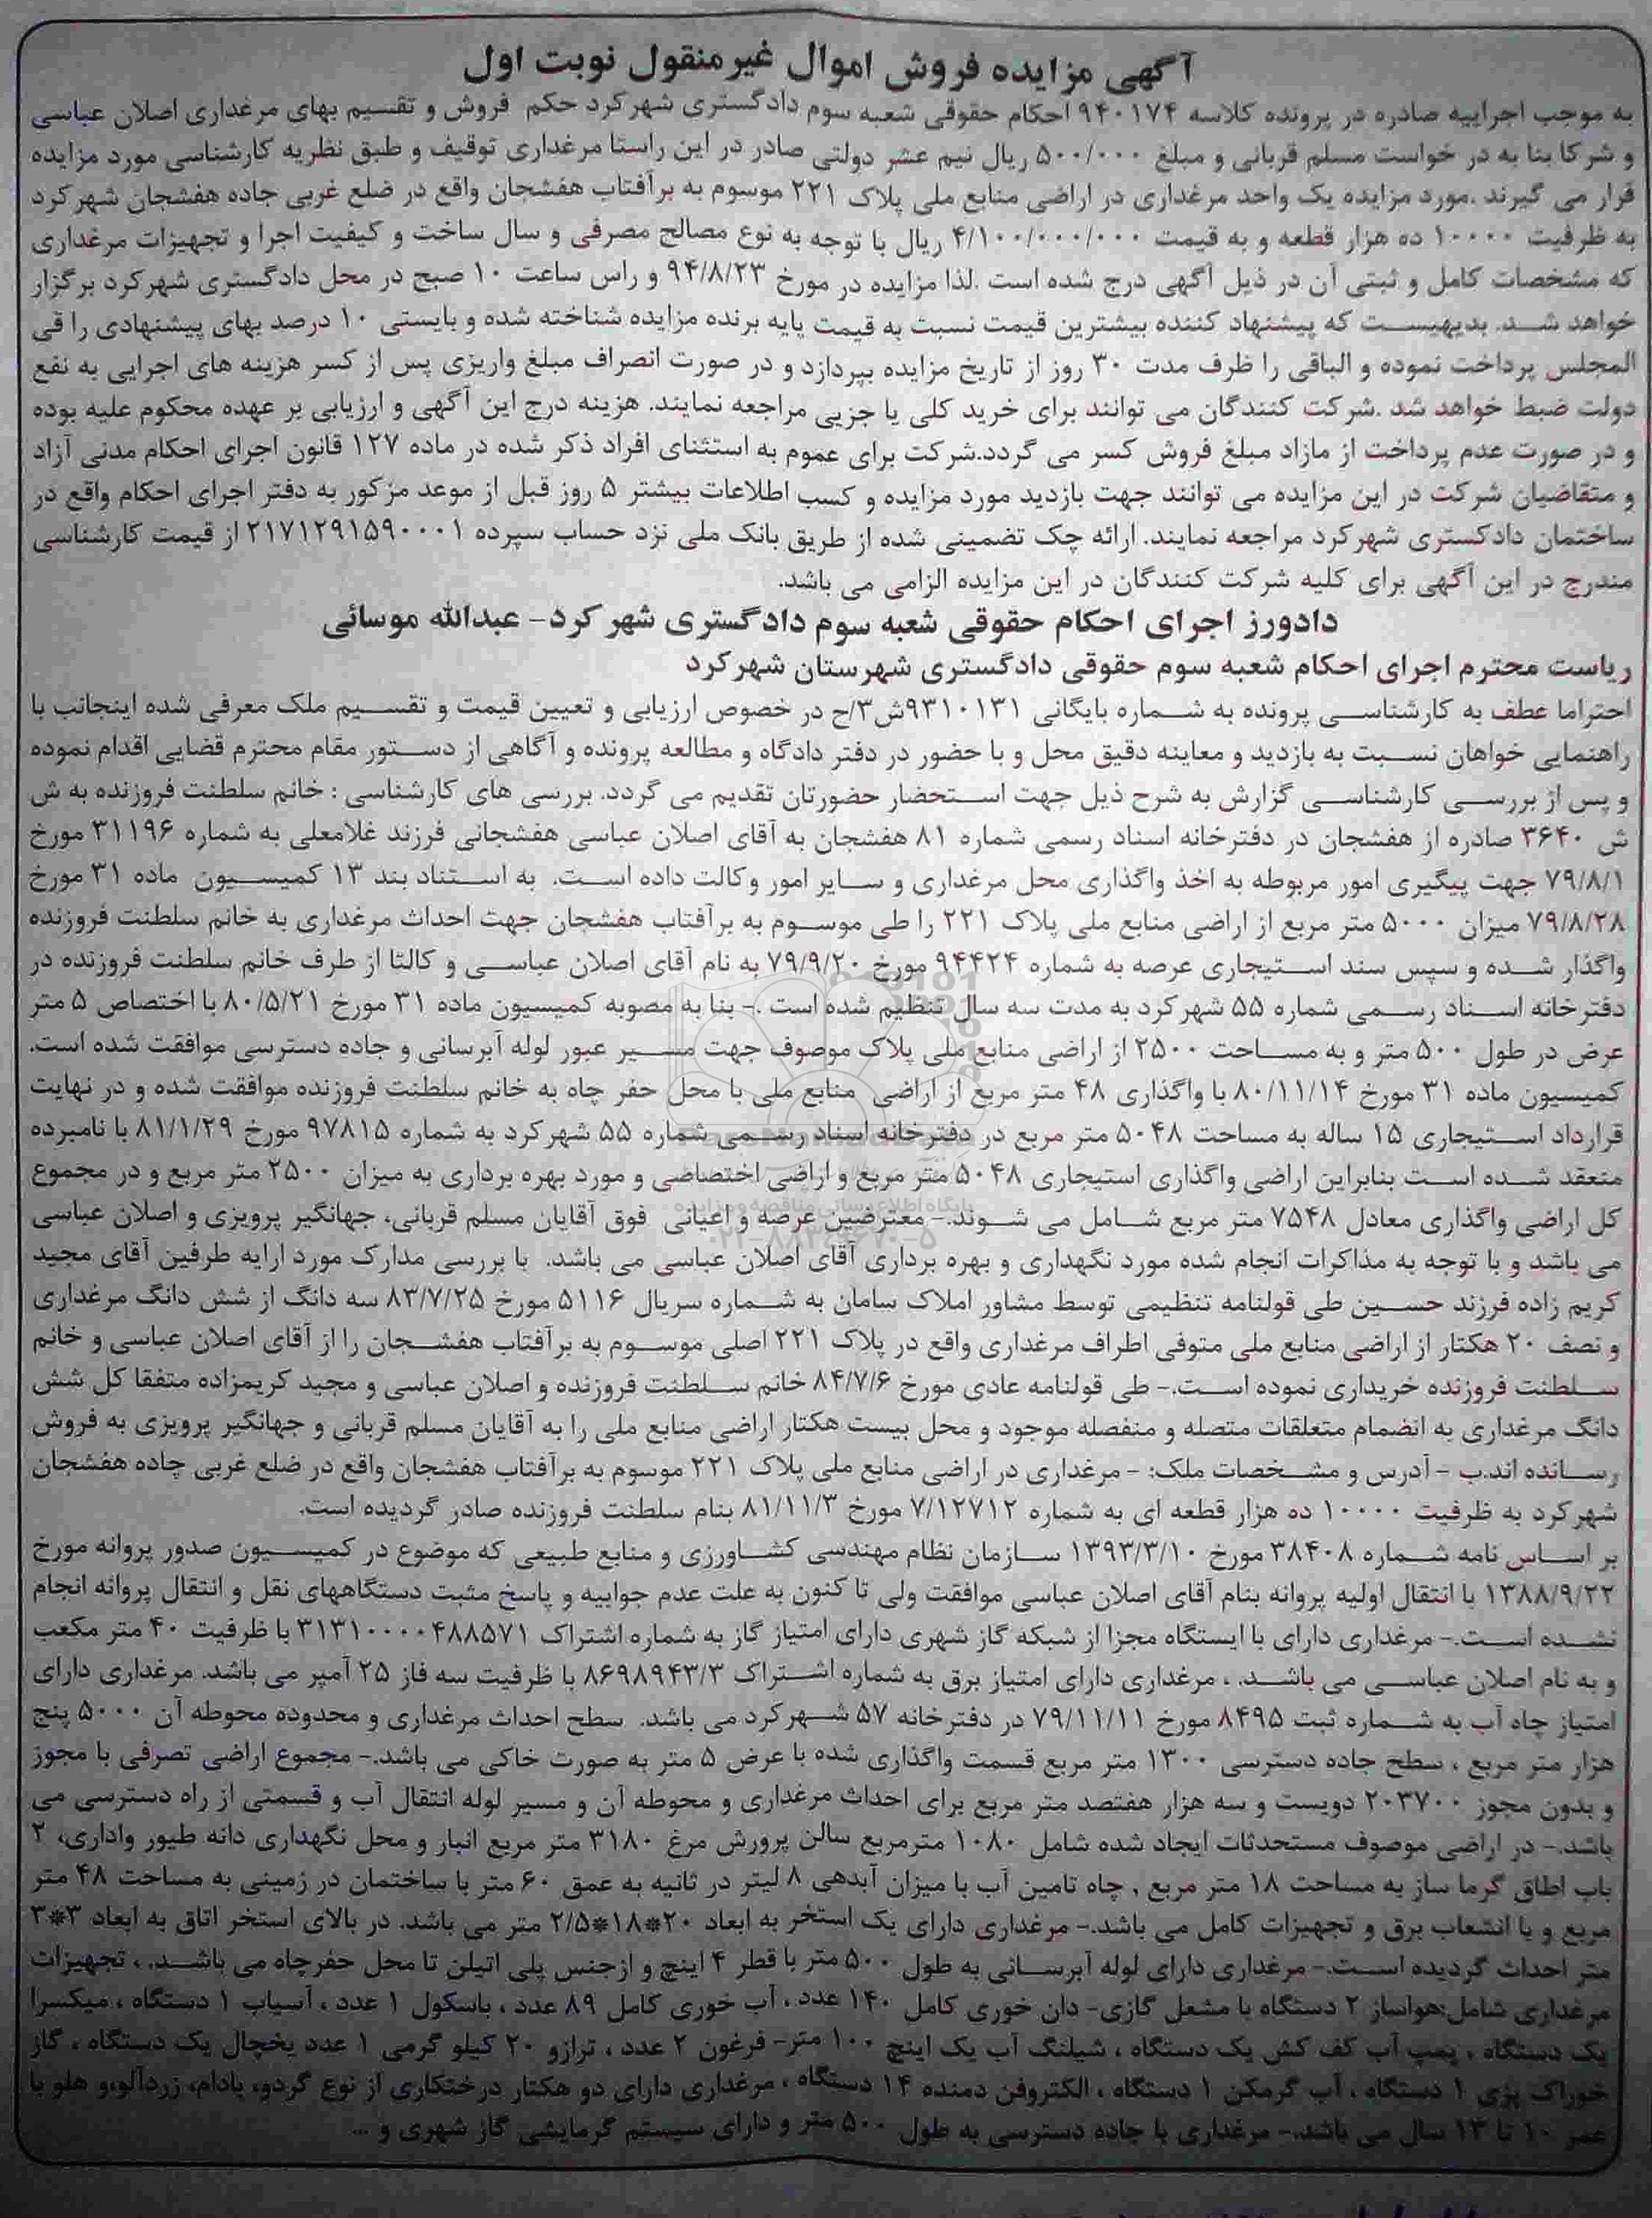 آگهی مزایده فروش اموال غیرمنقول نوبت اول
به موجب اجراییه صادره در پرونده کلاسه ۹۴۰۱۷۴ احکام حقوقی شعبه سوم دادگستری شهرکرد حکم فروش و تقسیم بهای مرغداری اصلان عباسی
و شرکا بنا به در خواست مسلم قربانی و مبلغ ۵۰۰/۰۰۰ ریال نیم عشر دولتی صادر در این راستا مرغداری توقیف و طبق نظریه کارشناسی مورد مزایده
قرار می گیرند .مورد مزایده یک واحد مرغداری در اراضی منابع ملی پلاک ۲۲۱ موسوم به برآفتاب هفشجان واقع در ضلع غربی جاده هفشجان شهرکرد
به ظرفیت ۱۰۰۰۰ ده هزار قطعه و به قیمت ۴/۱۰۰/۰۰۰/۰۰۰ ریال با توجه به نوع مصالح مصرفی و سال ساخت و کیفیت اجرا و تجهیزات مرغداری
که مشخصات کامل و ثبتی آن در ذیل آگهی درج شده است .لذا مزایده در مورخ ۹۴/۸/۲۳ و راس ساعت ۱۰ صبح در محل دادگستری شهرکرد برگزار
خواهد شد. بدیهیست که پیشنهاد کننده بیشترین قیمت نسبت به قیمت پایه برنده مزایده شناخته شده و بایستی ۱۰ درصد بهای پیشنهادی را فی
المجلس پرداخت نموده و الباقی را ظرف مدت ۳۰ روز از تاریخ مزایده بپردازد و در صورت انصراف مبلغ واریزی پس از کسر هزینه های اجرایی به نفع
دولت ضبط خواهد شد .شرکت کنندگان می توانند برای خرید کلی یا جزیی مراجعه نمایند. هزینه درج این آگهی و ارزیابی بر عهده محکوم علیه بوده
و در صورت عدم پرداخت از مازاد مبلغ فروش کسر می گردد.شرکت برای عموم به استثنای افراد ذکر شده در ماده ۱۲۷ قانون اجرای احکام مدنی آزاد
و متقاضیان شرکت در این مزایده می توانند جهت بازدید مورد مزایده و کسب اطلاعات بیشتر ۵ روز قبل از موعد مزکور به دفتر اجرای احکام واقع در
ساختمان دادکستری شهرکرد مراجعه نمایند. ارائه چک تضمینی شده از طریق بانک ملی نزد حساب سپرده ۲۱۷۱۲۹۱۵۹۰۰۰۱ از قیمت کارشناسی
مندرج در این آگهی برای کلیه شرکت کنندگان در این مزایده الزامی می باشد.
دادورز اجرای احکام حقوقی شعبه سوم دادگستری شهرکرد- عبدالله موسائی
ریاست محترم اجرای احکام شعبه سوم حقوقی دادگستری شهرستان شهرکرد
احتراما عطف به کارشناسی پرونده به شماره بایگانی ۹۳۱۰۱۳۱ش۳/ح در خصوص ارزیابی و تعیین قیمت و تقسیم ملک معرفی شده اینجانب با
راهنمایی خواهان نسبت به بازدید و معاینه دقیق محل و با حضور در دفتر دادگاه و مطالعه پرونده و آگاهی از دستور مقام محترم قضایی اقدام نموده
و پس از بررسی کارشناسی گزارش به شرح ذیل جهت استحضار حضورتان تقدیم می گردد. بررسی های کارشناسی : خانم سلطنت فروزنده به ش
ش ۳۶۴۰ صادره از هفشجان در دفترخانه اسناد رسمی شماره ۸۱ هفشجان به آقای اصلان عباسی هفشجانی فرزند غلامعلی به شماره ۳۱۱۹۶ مورخ
۷۹/۸/۱ جهت پیگیری امور مربوطه به اخذ واگذاری محل مرغداری و سایر امور وکالت داده است. به استناد بند ۱۳ کمیسیون ماده ۳۱ مورخ
۷۹/۸/۲۸ میزان ۵۰۰۰ متر مربع از اراضی منابع ملی پلاک ۲۲۱ را طی موسوم به برآفتاب هفشجان جهت احداث مرغداری به خانم سلطنت فروزنده
واگذار شده و سپس سند استیجاری عرصه به شماره ۹۴۴۲۴ مورخ ۷۹/۹/۲۰ به نام آقای اصلان عباسی و کالتا از طرف خانم سلطنت فروزنده در
دفترخانه اسناد رسمی شماره ۵۵ شهرکرد به مدت سه سال تنظیم شده است .- بنا به مصوبه کمیسیون ماده ۳۱ مورخ ۸۰/۵/۲۱ با اختصاص ۵ متر
عرض در طول ۵۰۰ متر و به مساحت ۲۵۰۰ از اراضی منابع ملی پلاک موصوف جهت مسیر عبور لوله آبرسانی و جاده دسترسی موافقت شده است.
کمیسیون ماده ۳۱ مورخ ۸۰/۱۱/۱۴ با واگذاری ۴۸ متر مربع از اراضی منابع ملی با محل حفر چاه به خانم سلطنت فروزنده موافقت شده و در نهایت
قرارداد استیجاری ۱۵ ساله به مساحت ۵۰۴۸ متر مربع در دفترخانه اسناد رسمی شماره ۵۵ شهرکرد به شماره ۹۷۸۱۵ مورخ ۸۱/۱/۲۹ با نامبرده
منعقد شده است بنابراین اراضی واگذاری استیجاری ۵۰۴۸ متر مربع و اراضی اختصاصی و مورد بهره برداری به میزان ۲۵۰۰ متر مربع و در مجموع
کل اراضی واگذاری معادل ۷۵۴۸ متر مربع شامل می شوند.- معترضین عرصه و اعیانی فوق آقایان مسلم قربانی، جهانگیر پرویزی و اصلان عباسی
می باشد و با توجه به مذاکرات انجام شده مورد نگهداری و بهره برداری آقای اصلان عباسی می باشد. با بررسی مدارک مورد ارایه طرفین آقای مجید
کریم زاده فرزند حسین طی قولنامه تنظیمی توسط مشاور املاک سامان به شماره سریال ۵۱۱۶ مورخ ۸۳/۷/۲۵ سه دانگ از شش دانگ مرغداری
و نصف ۲۰ هکتار از اراضی منابع ملی متوفی اطراف مرغداری واقع در پلاک ۲۲۱ اصلی موسوم به برآفتاب هفشجان را از آقای اصلان عباسی و خانم
سلطنت فروزنده خریداری نموده است.- طی قولنامه عادی مورخ ۸۴/۷/۶ خانم سلطنت فروزنده و اصلان عباسی و مجید کریمزاده متفقا کل شش
دانگ مرغداری به انضمام متعلقات متصله و منفصله موجود و محل بیست هکتار اراضی منابع ملی را به آقایان مسلم قربانی و جهانگیر پرویزی به فروش
رسانده اند.ب - آدرس و مشخصات ملک: - مرغداری در اراضی منابع ملی پلاک ۲۲۱ موسوم به برآفتاب هفشجان واقع در ضلع غربی جاده هفشجان
شهرکرد به ظرفیت ۱۰۰۰۰ ده هزار قطعه ای به شماره ۷/۱۲۷۱۲ مورخ ۸۱/۱۱/۳ بنام سلطنت فروزنده صادر گردیده است.
بر اساس نامه شماره ۳۸۴۰۸ مورخ ۱۳۹۳/۳/۱۰ سازمان نظام مهندسی کشاورزی و منابع طبیعی که موضوع در کمیسیون صدور پروانه مورخ
۱۳۸۸/۹/۲۲ با انتقال اولیه پروانه بنام آقای اصلان عباسی موافقت ولی تا کنون به علت عدم جوابیه و پاسخ مثبت دستگاههای نقل و انتقال پروانه انجام
نشده است.- مرغداری دارای با ایستگاه مجزا از شبکه گاز شهری دارای امتیاز گاز به شماره اشتراک ۳۱۳۱۰۰۰۰۴۸۸۵۷۱ با ظرفیت ۴۰ متر مکعب
و به نام اصلان عباسی می باشد. ، مرغداری دارای امتیاز برق به شماره اشتراک ۸۶۹۸۹۴۳/۳ با ظرفیت سه فاز ۲۵ آمپر می باشد. مرغداری دارای
امتیاز چاه آب به شماره ثبت ۸۴۹۵ مورخ ۷۹/۱۱/۱۱ در دفترخانه ۵۷ شهرکرد می باشد. سطح احداث مرغداری و محدوده محوطه آن ۵۰۰۰ پنج
هزار متر مربع ، سطح جاده دسترسی ۱۳۰۰ متر مربع قسمت واگذاری شده با عرض ۵ متر به صورت خاکی می باشد.- مجموع اراضی تصرفی با مجوز
و بدون مجوز ۲۰۳۷۰۰ دویست و سه هزار هفتصد متر مربع برای احداث مرغداری و محوطه آن و مسیر لوله انتقال آب و قسمتی از راه دسترسی می
باشد.- در اراضی موصوف مستحدثات ایجاد شده شامل ۱۰۸۰ مترمربع سالن پرورش مرغ ۳۱۸۰ متر مربع انبار و محل نگهداری دانه طیور واداری، ۲
باب اطاق گرما ساز به مساحت ۱۸ متر مربع , چاه تامین آب با میزان آبدهی ۸ لیتر در ثانیه به عمق ۶۰ متر با ساختمان در زمینی به مساحت ۴۸ متر
مربع و با انشعاب برق و تجهیزات کامل می باشد.- مرغداری دارای یک استخر به ابعاد ۲۰*۱۸*۲/۵ متر می باشد. در بالای استخر اتاق به ابعاد ۳*۳
متر احداث گردیده است.- مرغداری دارای لوله آبرسانی به طول ۵۰۰ متر با قطر ۴ اینچ و ازجنس پلی اتیلن تا محل حفرچاه می باشد. ، تجهیزات
مرغداری شامل:هواساز ۲ دستگاه با مشعل گازی- دان خوری کامل ۱۴۰ عدد ، آب خوری کامل ۸۹ عدد ، باسکول ۱ عدد ، آسیاب ۱ دستگاه ، میکسرا
یک دستگاه ، پمپ آب کف کش یک دستگاه ، شیلنگ آب یک اینچ ۱۰۰ متر- فرغون ۲ عدد ، ترازو ۲۰ کیلو گرمی ۱ عدد یخچال یک دستگاه ، گاز
خوراک پزی ۱ دستگاه ، آب گرمکن ۱ دستگاه ، الکتروفن دمنده ۱۴ دستگاه ، مرغداری دارای دو هکتار درختکاری از نوع گردو، بادام، زردآلو،و هلو با
عمر ۱۰ تا ۱۳ سال می باشد.- مرغداری با جاده دسترسی به طول ۵۰۰ متر و دارای سیستم گرمایشی گاز شهری و ...